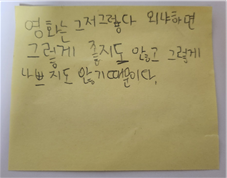 영화는 그저그렇다 왜냐하면
그렇게 좋지도 않고 그렇게
나쁘지도 않기때문이다.